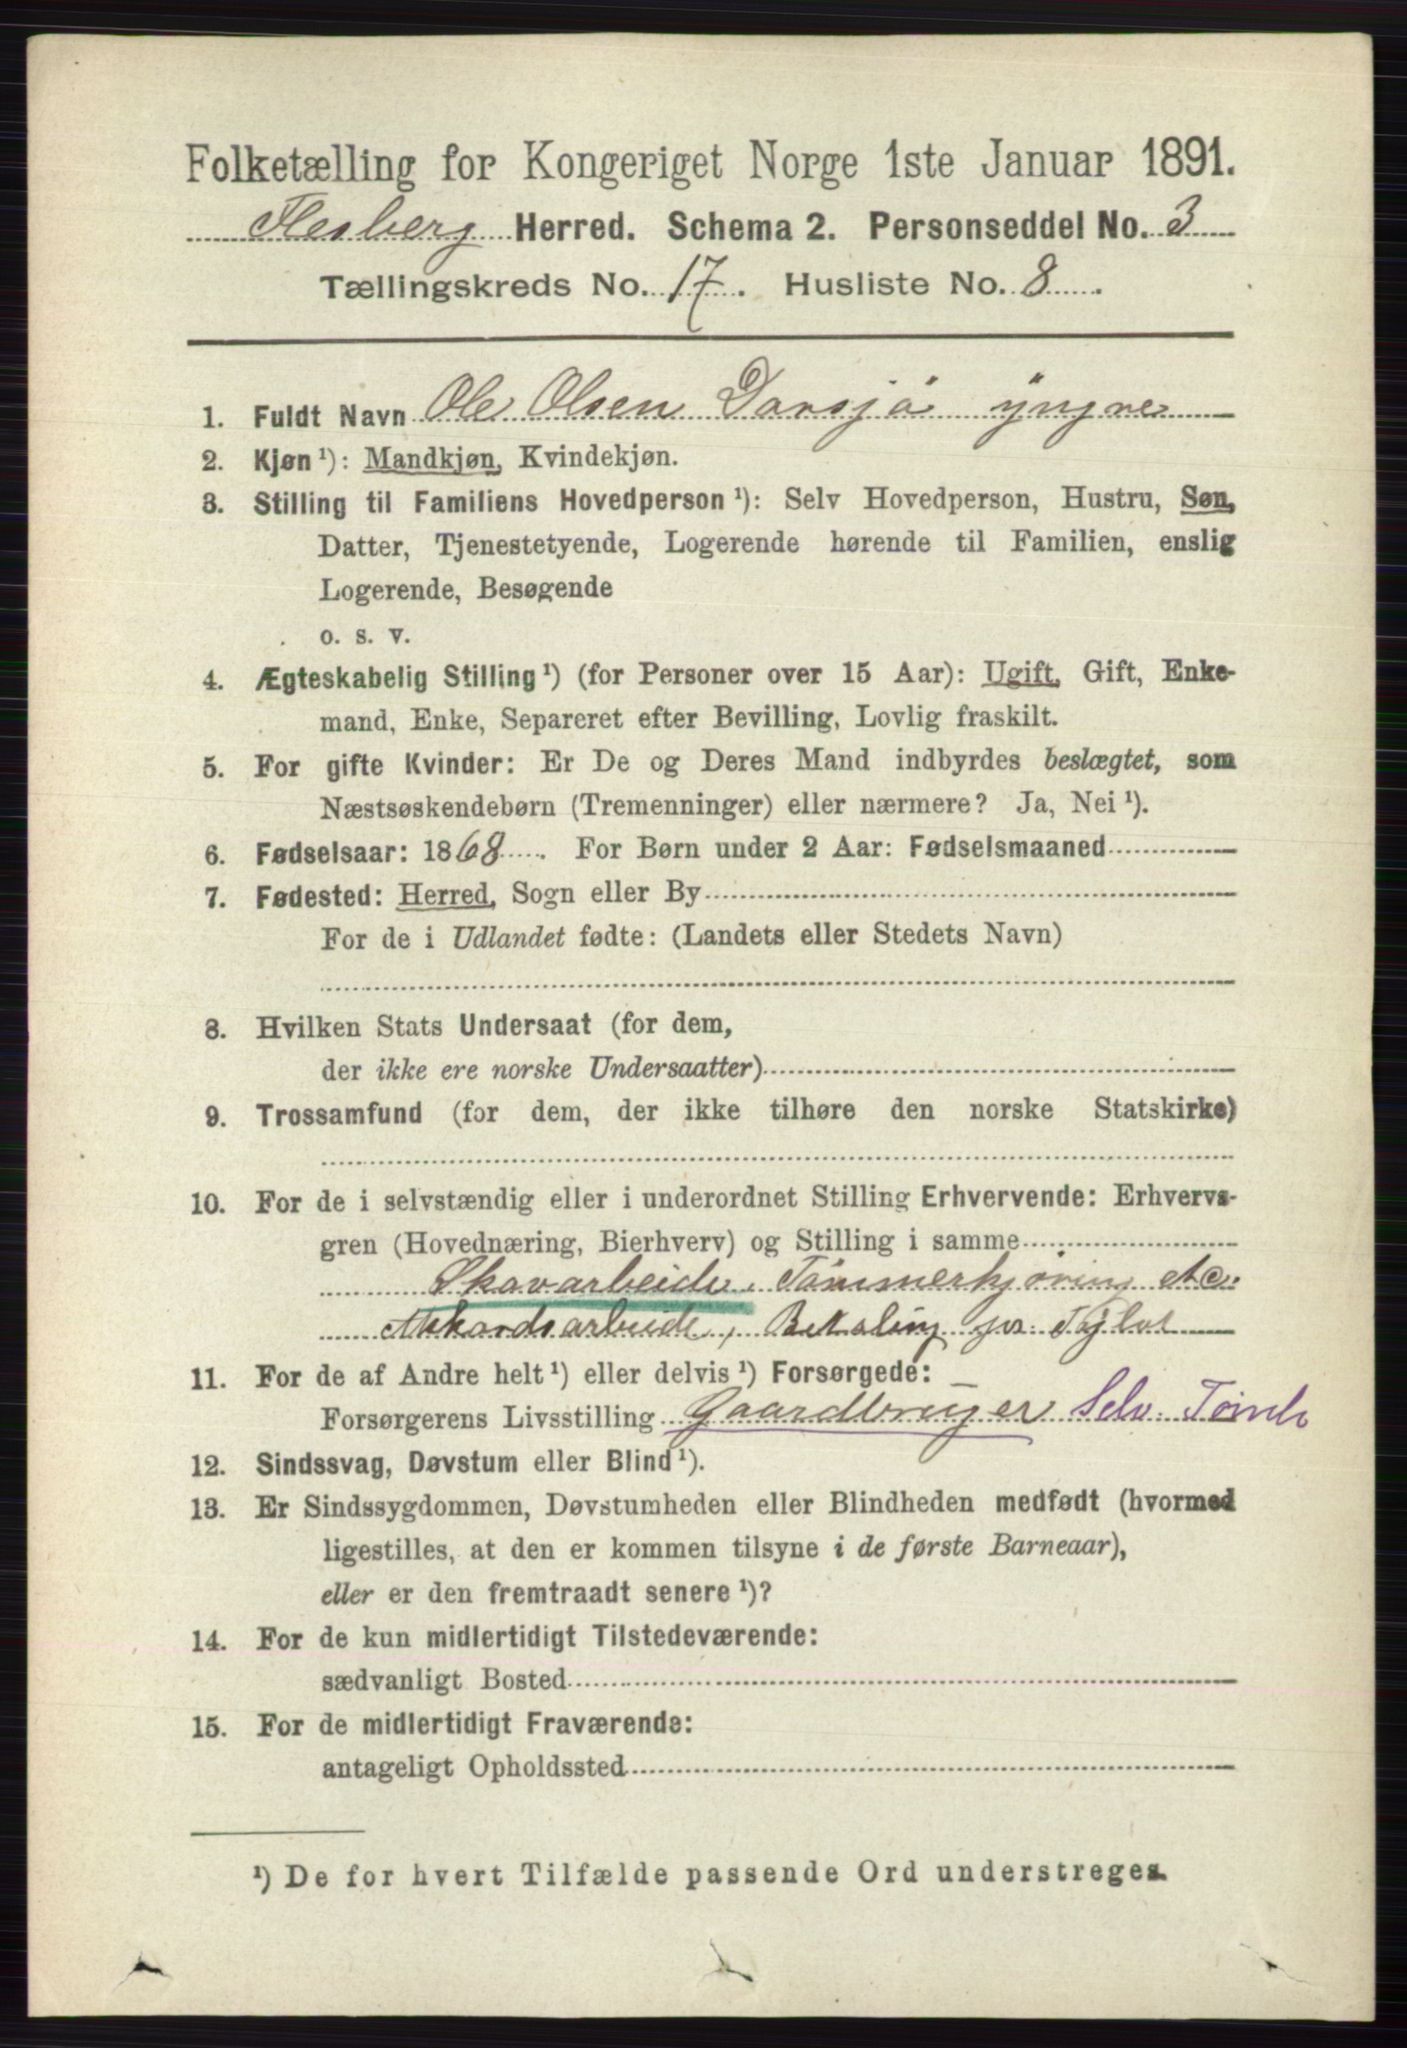 Folketælling for Kongeriget Norge 1ste Januar 1891.
Flesberg Herred. Schema 2. Personseddel No. 3
Tællingskreds No. 17. Husliste No. 8.
1. Fuldt Navn Ole Olsen Dansjø yngre
2. Kjøn ¹): Mandkjøn, Kvindekjøn.
3. Stilling til Familiens Hovedperson ¹): Selv Hovedperson, Hustru, Søn,
Datter, Tjenestetyende, Logerende hørende til Familien, enslig
Logerende, Besøgende
o. s. v.
4. Ægteskabelig Stilling ¹) (for Personer over 15 Aar): Ugift, Gift, Enke-
mand, Enke, Separeret efter Bevilling, Lovlig fraskilt.
5. For gifte Kvinder: Er De og Deres Mand indbyrdes beslægtet, som
Næstsøskendebørn (Tremenninger) eller nærmere? Ja, Nei ¹).
6. Fødselsaar: 1868. For Børn under 2 Aar: Fødselsmaaned
7. Fødested: Herred, Sogn eller By
For de i Udlandet fødte: (Landets eller Stedets Navn)
8. Hvilken Stats Undersaat (for dem,
der ikke ere norske Undersaatter)
9. Trossamfund (for dem, der ikke tilhøre den norske Statskirke)
10. For de i selvstændig eller i underordnet Stilling Erhvervende: Erhvervs-
gren (Hovednæring, Bierhverv) og Stilling i samme
Skovarbeide, Tømmerkjøring etc.
Akkordsarbeide, Betaling pr. Tylvt
11. For de af Andre helt ¹) eller delvis ¹) Forsørgede:
Forsørgerens Livsstilling Gaardbruger Selv.
12. Sindssvag, Døvstum eller Blind ¹).
13. Er Sindssygdommen, Døvstumheden eller Blindheden medfødt (hvormed
ligestilles, at den er kommen tilsyne i de første Barneaar),
eller er den fremtraadt senere ¹)?
14. For de kun midlertidigt Tilstedeværende:
sædvanligt Bosted
15. For de midlertidigt Fraværende:
antageligt Opholdssted
¹) De for hvert Tilfælde passende Ord understreges.